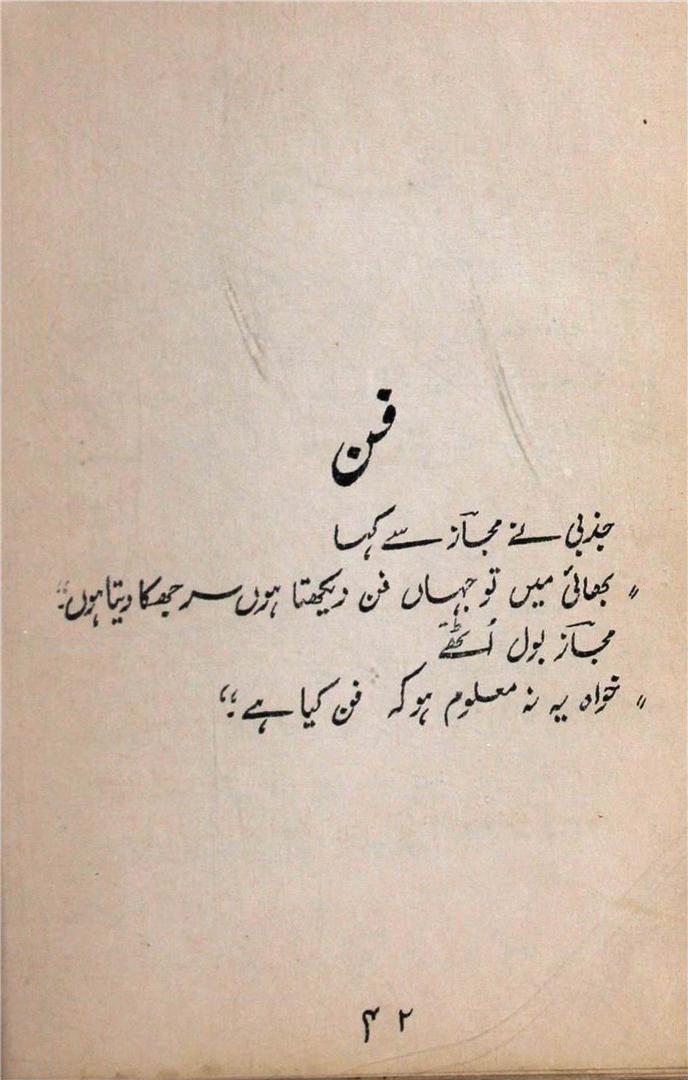 فن
جذبی نے مجاؔز سے کہا
"بھائی میں تو جہاں فن دیکھتا ہوں سر جھکا دیتا ہوں۔"
مجاؔز بول اُٹھے
"خواہ یہ نہ معلوم ہو کہ فن کیا ہے؟"
۴۲